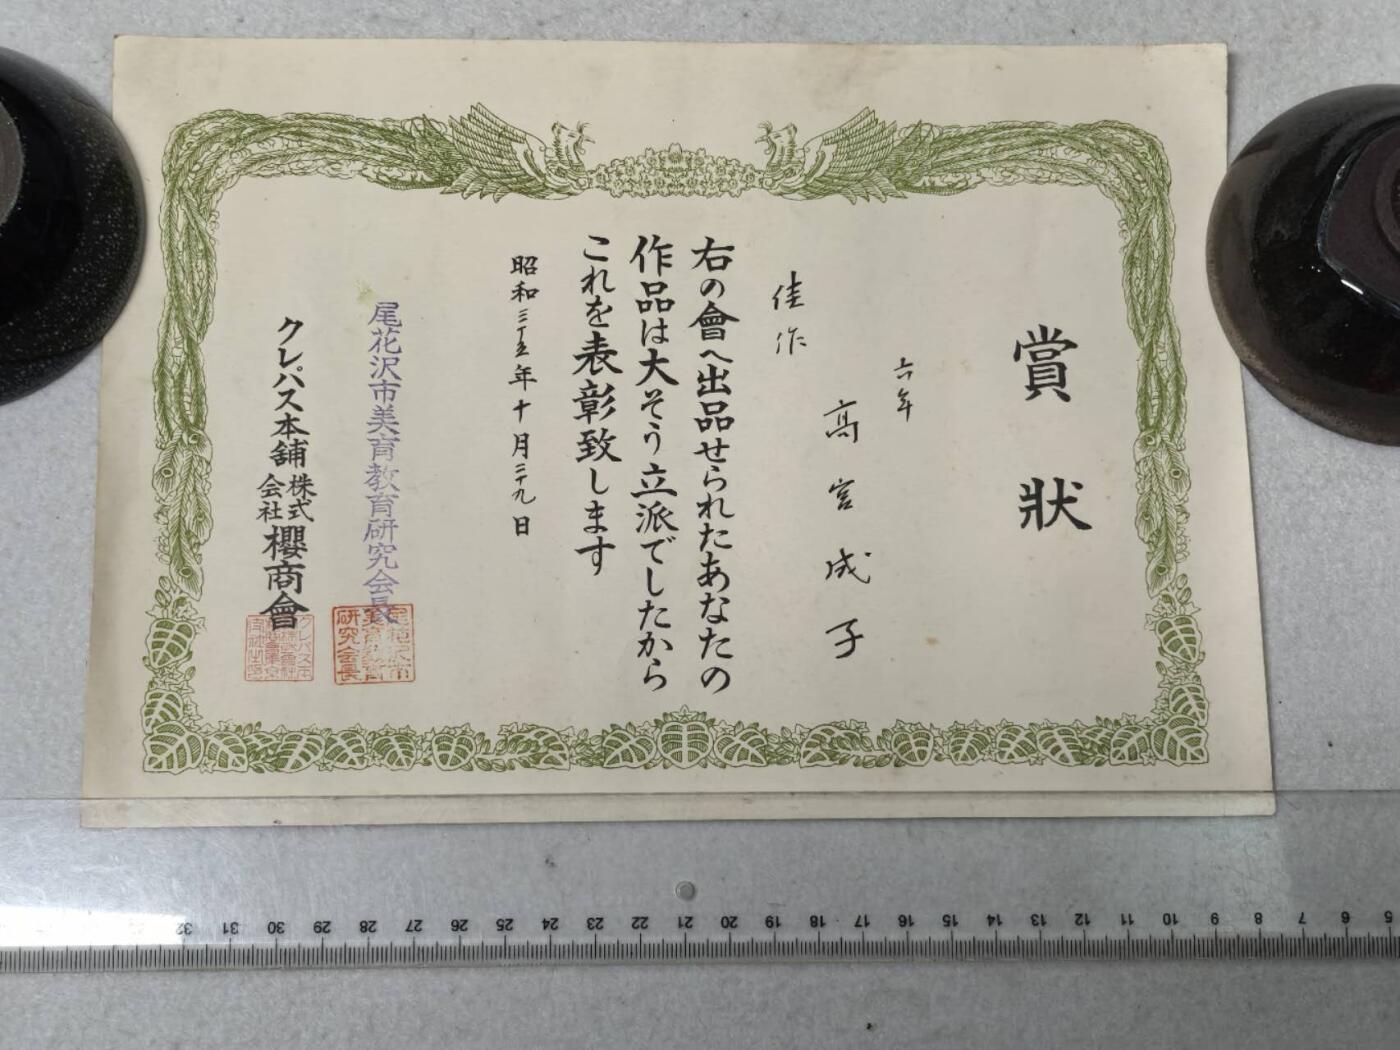 賞狀
六年
高宮成子
佳作
右の會へ出品せられたあなたの
作品は大そう立派でしたから
これを表彰致します
昭和三十五年十月二十九日
尾花沢市美育教育研究会長
クレパス本舗株式会社櫻商會
32 31 30 29 28 27 26 25 24 23 22 21 20 19 18 17 16 15 14 13 12 11 10 9 8 7 6 5